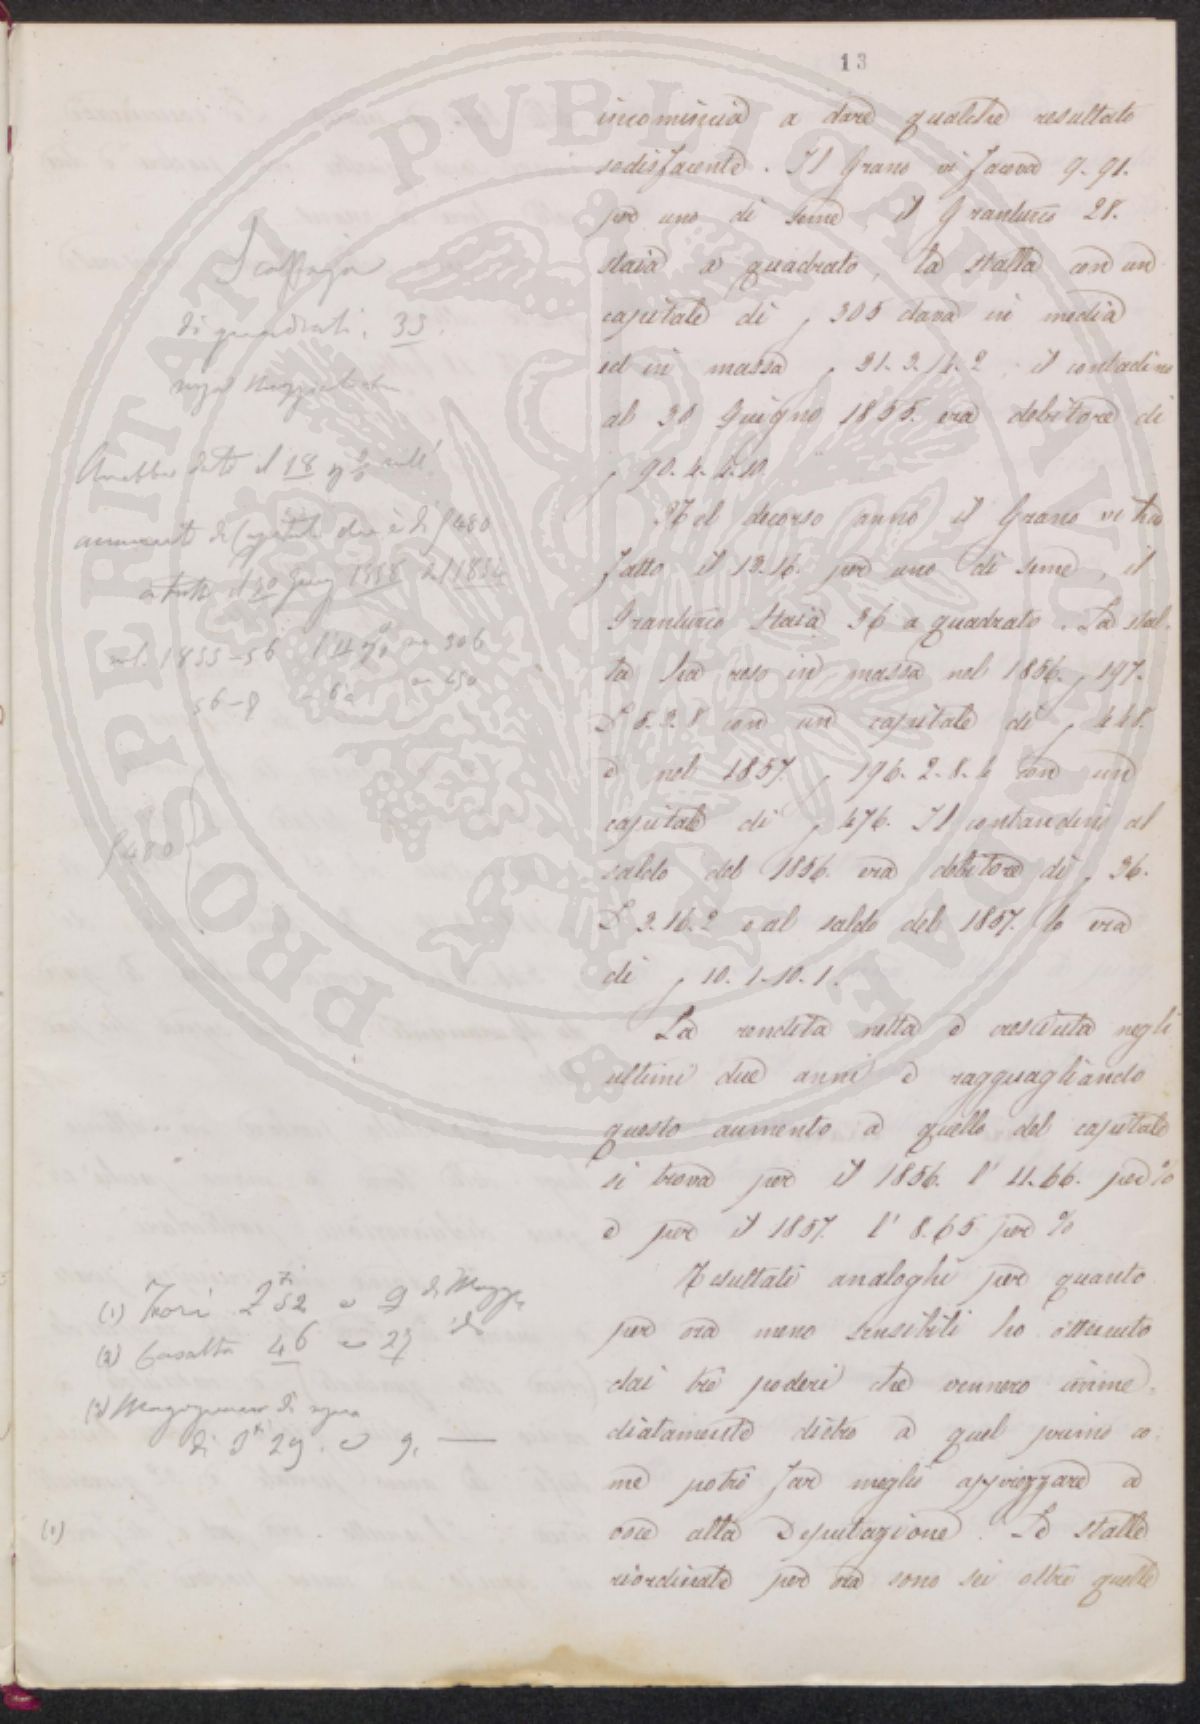 13
incomincia a dare qualche resultato
sodisfacente. Il Grano vi faceva 9.91.
per uno di seme, il Granturco 28.
staia a quadrato, la stalla con un
capitale di £ 305 dava in media
ed in massa £ 31.3.14.2; il contadino
al 30 Guigno 1855. era debitore di
£ 90.4.4.10.
Nel decorso anno il Grano vi ha
fatto il 13.16. per uno di seme, il
Granturco Staia 36 a quadrato. La stal-
la ha reso in massa nel 1856. £ 197.
£ 5.3.8 con un capitale di £ 448.
e nel 1857. £ 196.2.8.4 con un
capitale di £ 476. Il contandini al
saldo del 1856. era debitore di £ 36.
£ 3.16.2 e al saldo del 1857. lo era
di £ 10.1.10.1.
La rendita netta è cresciuta negli
ultimi due anni e ragguagliando
questo aumento a quello del capitale
si trova per il 1856. l' 11.66. per %
e per il 1857. l' 8.65 per %
Resultati analoghi per quanto
per ora meno sensibili ho ottenuto
dai tre poderi che vennero imme-
diatamente dietro a quel primo co-
me potrà far meglio apprezzare a
osce alta Deputazione. Le stalle
riordinate per ora sono sei oltre quelle
Scoffaja
di quadrati. 33.
Avrebbe dato il 18 % sull'
aumento di Capitale che è di £ 480
a tutto il 30 Giug 1858
nel 1855-56 l'11 % 306
56-8 650
£ 480
(1) Fori 52 e 9 di Mugg
(2) Casalta 46 e 27 id
(3)
di 29. e 9. —
(1)
PROSPERITATI PVBLICAE AVGENDAE